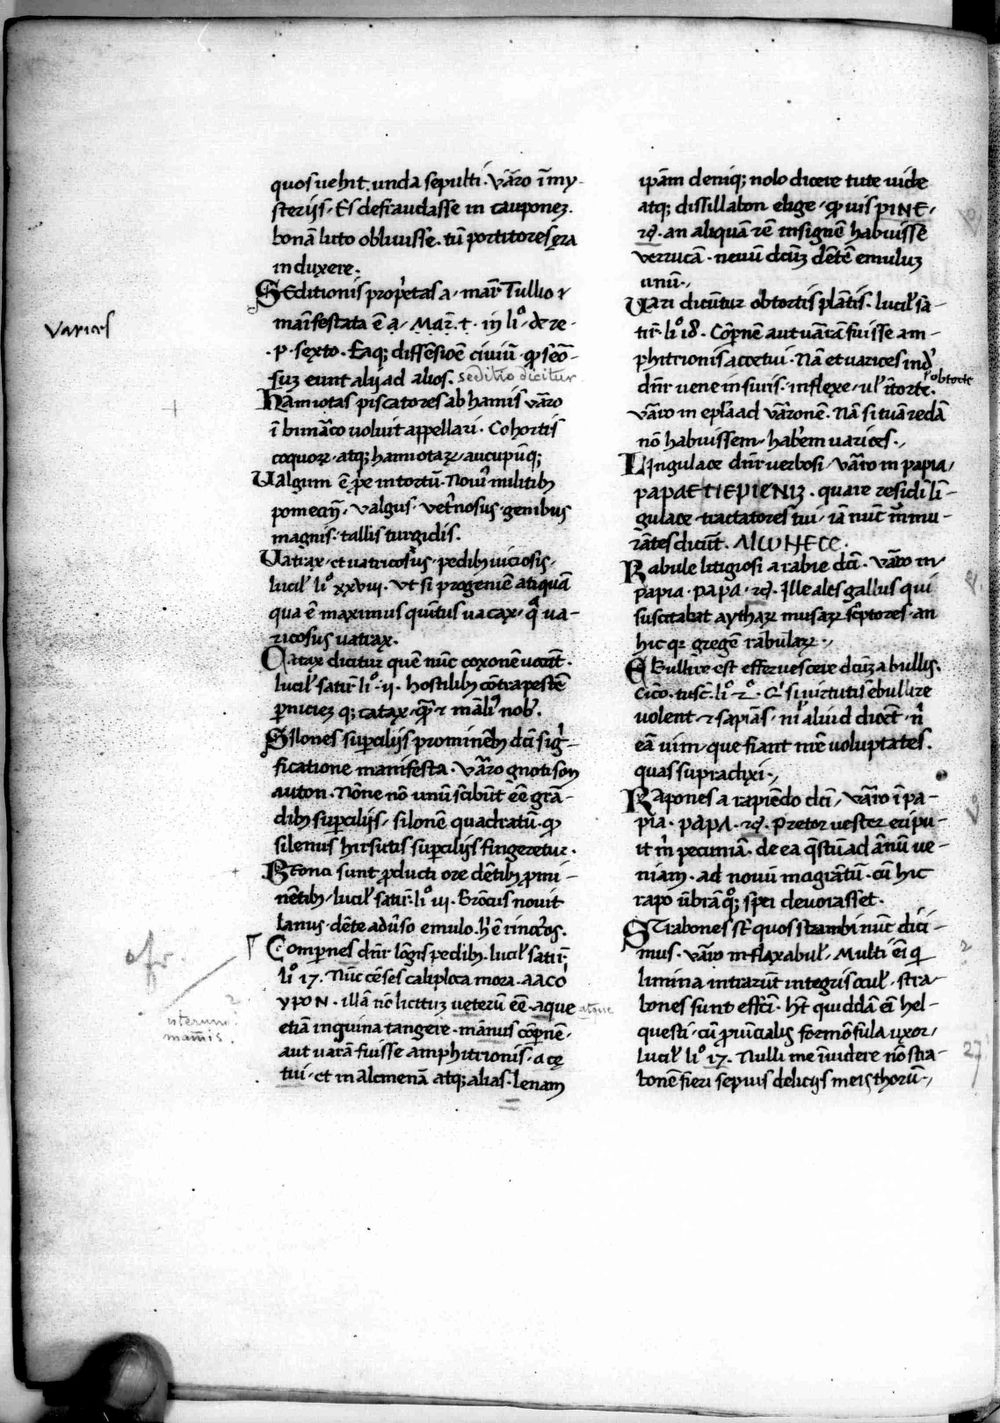 quos uehit. unda sepulti. Varo ī my-
sterijs. Es defraudasse in cauponez.
bonā luto obliuisse. tum portitores ęra
induxere.
SEditionis propietas a. mar. Tullio &
mańifestata ē a. Mar̄. t. in li°. de re-
.p. sexto. Eaq; dissēsioē ciuiū. ꝙ seō-
suz eunt alij ad alios. seditio dicitur
Hamiotas piscatores ab hamis varo
ī bimarco uoluit appellari. Cohortis
coquorꝝ. atq; hamiotarꝝ. aucupūq;
Ualgum ē ꝓpe intortū. Noui' militib;
pomecij. valgus. vet'nosus. genibus
magnis. tallis turgidis.
Uatrax. et uatricosus. pedib; uiciosis.
lucil' li° xxviii. vt si progeniē atiquā
qua ē maximus quītus uacax. q̄ ua-
ricosus uatrax.
Catax dicitur quē nūc coxonē uocāt.
lucil' satir̄ li°. ij. hostilib; cōtra pestē
ꝑniciez q; catax. & māli' nob'.
Silones suꝑcilijs prominētib; dcī sig̅-
ficatione manifesta. Varo gnotison
auton. Nōne nō unū scībūt eē grā-
dib; suꝑcilijs. silonē quadratū. ꝙ
silenus hirsutis suꝑcilijs fingeretur.
Bronci sunt ꝓducti ore dētib; ꝓmi-
nētib;. lucil' satir̄. li° iij. Brōcus nouit
lanus. dēte adu'so emulo. h' ē rinoc'os.
Comꝑnes dnr̄ lōgis pedib;. lucil' satir̄.
li° 17. Nūc cēses caliploca mora. AACO
YPON. illā nō licituz ueterū eē. aque atque
etiā inguina tangere. mānus cōꝑnē.
aut uarā fuisse amphitrionis. acę
tui. et in alcmenā atq; alias. lenam
Varices
uterum
mamis.
ipām deniq; nolo dicere tute uide
atq; dissillabon elige. ꝙ uis PINE.
an aliquā rē insignē habuisse
verrucā. neuū dcūz dētē emuluz
unū.
Uari dicūtur obtortis plātis. lucil' sa-
tir̄. li° 18. Cōꝑnē aut uarā fuisse am-
phitrionis accetui. Nā et uarices ind'
dnr̄ uene in suris. inflexe. ul' ītorte. ul' obtorte
varo in epl'a ad varonē. Nā si tuā redā
nō habuissem. habēm uarices.
Lingulace dnr̄ uerbosi. varo in papia.
PAPAE TIEPIENIZ. quare residi lī-
gulace. tractatores tui. iā nūc mmu-
rātes dicūt. AICUNECE.
Rabule litigiosi a rabie dcī. varo in
papia. PAPA. Ille ales gallus qui
suscitabat aytharꝝ musarꝝ scptores. an
hic qꝛ gregē rabularꝝ.
EBullire est efferuescere dcūz a bullis.
Cico. tusc̄. li° 2°. Q' si uirtutis ebullire
uolent. & sapiās. ni' aliud dicēt. n'
eā uim. que fiant nre uoluptates.
quas supradixi.
Rapones a rapiēdo dcī. varo ī pa-
pia. PAPA. Pretor uester eripu-
it m' pecuniā. de ea q̄stū ad ānū ue-
niam. ad nouū migrātū. cū hic
rapo ūbrā q°q; spei deuorasset.
STrabones st' quos strambi nūc dici-
mus. varo in flaxabul'. Multi eī q
limina intrarūt integris ocul'. stra-
bones sunt effcī. Ht quiddā eī hel-
questi. cū ꝓuīcialis formōsula uxor.
lucil' li° 17. Nulli me īuidere nō stra-
bonē fieri sepius delicijs meis thorū.
27